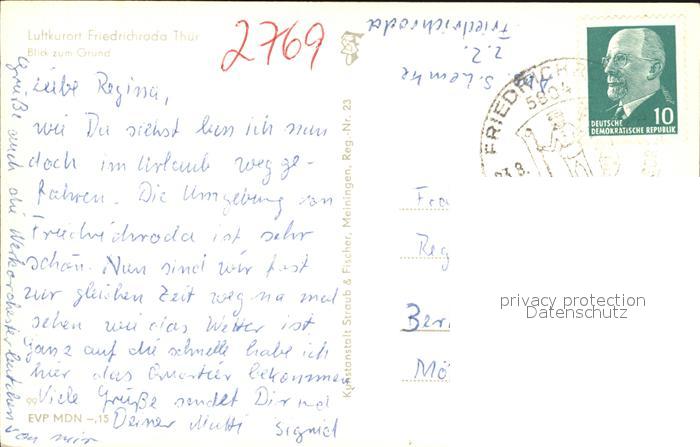 Luftkurort Friedrichroda Thür
Blick zum Grund
2769
Liebe Regina,
wie Du siehst bin ich nun
doch im Urlaub wegge-
fahren. Die Umgebung von
Friedrichroda ist sehr
schön. Nun sind wir fast
zur gleichen Zeit weg na mal
sehen wie das Wetter ist
ganz auf die schnelle habe ich
hier das Quartier bekommen
Viele Grüße sendet Dir und
Deiner Mutti Sigrid
Grüße auch die Werkorchesterleutchen
von mir
EVP MDN -,15
Kunstanstalt Straub & Fischer, Meiningen, Reg.-Nr. 23
Abs. S. Lemke
z.Z.
Friedrichroda
FRIEDRICHR
5804
23.8.
10
DEUTSCHE
DEMOKRATISCHE REPUBLIK
Fra
Reg
Ber
Mö
privacy protection
Datenschutz